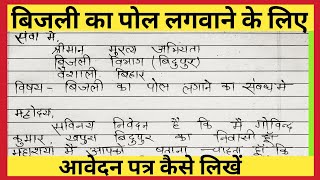 बिजली का पोल लगवाने के लिए
सेवा में,
श्रीमान मुख्य अभियंता
बिजली विभाग (बिदुपुर)
वैशाली बिहार
विषय - बिजली का पोल लगाने का संबंध मे
महोदय,
सविनय निवेदन है कि मैं गोविन्द
कुमार, बिदुपुर का निवासी हूँ
में आपको बताना चाहता हूँ कि
आवेदन पत्र कैसे लिखें